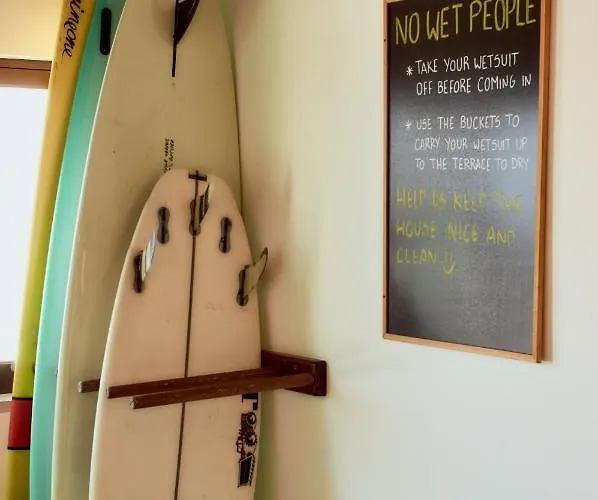 NO WET PEOPLE
* TAKE YOUR WETSUIT
OFF BEFORE COMING IN
* USE THE BUCKETS TO
CARRY YOUR WETSUIT UP
TO THE TERRACE TO DRY
HELP US KEEP THE
HOUSE NICE AND
CLEAN